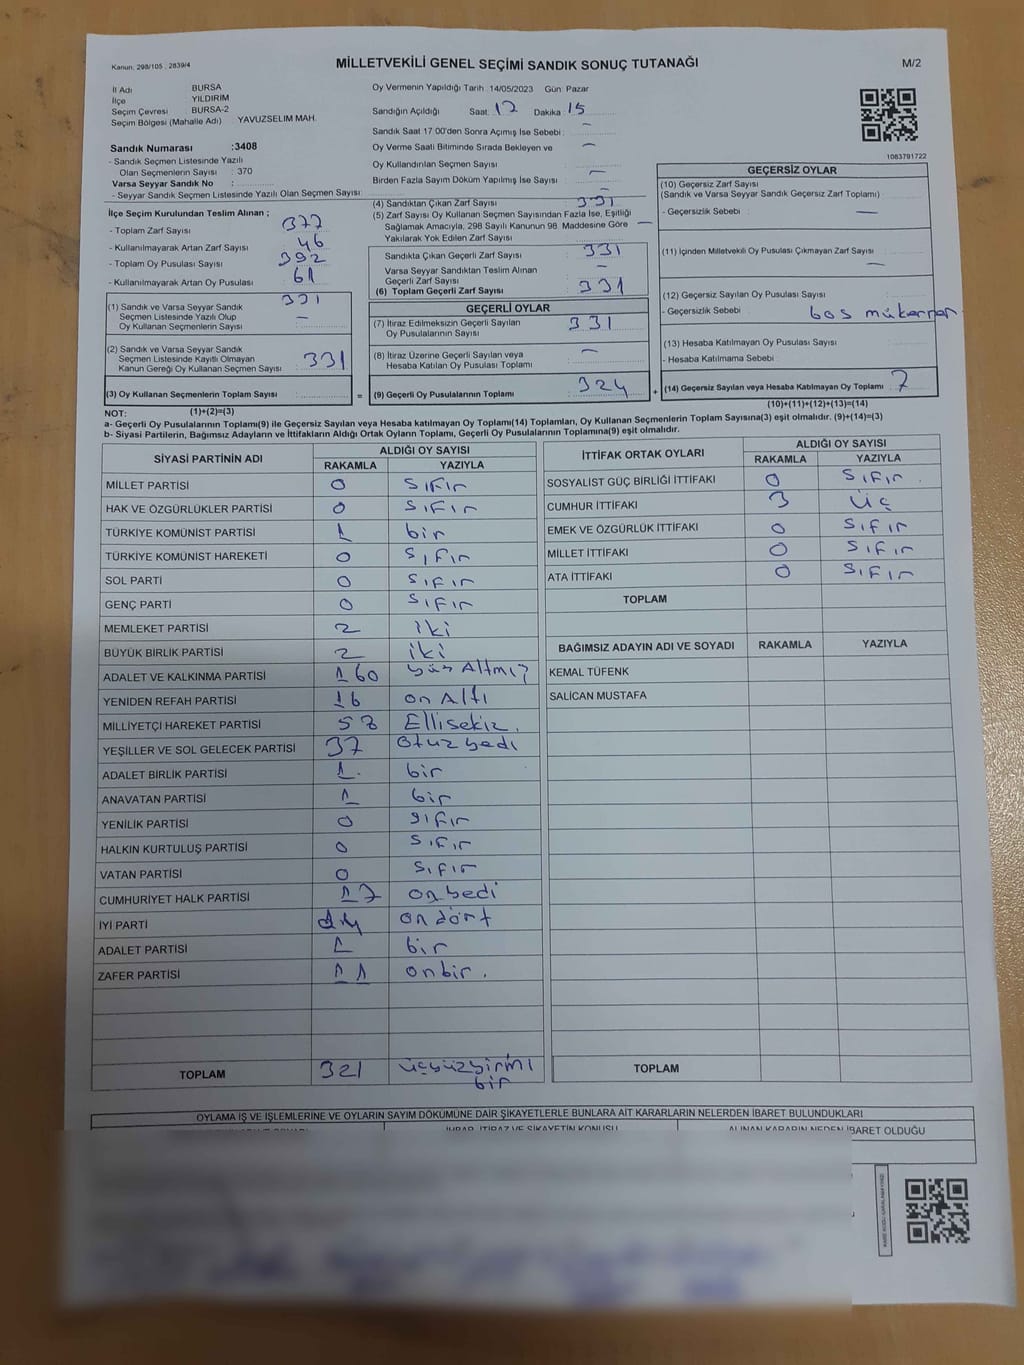 Kanun. 298/105 . 2839/4
MİLLETVEKİLİ GENEL SEÇİMİ SANDIK SONUÇ TUTANAĞI
M/2
İl Adı BURSA
İlçe YILDIRIM
Seçim Çevresi BURSA-2
Seçim Bölgesi (Mahalle Adı) YAVUZSELIM MAH.
Sandık Numarası :3408
- Sandık Seçmen Listesinde Yazılı
Olan Seçmenlerin Sayısı : 370
Varsa Seyyar Sandık No :
- Seyyar Sandık Seçmen Listesinde Yazılı Olan Seçmen Sayısı:
Oy Vermenin Yapıldığı Tarih 14/05/2023 Gün: Pazar
Sandığın Açıldığı Saat: 17 Dakika: 15
Sandık Saat 17 00'den Sonra Açımış İse Sebebi : -
Oy Verme Saati Bitiminde Sırada Bekleyen ve -
Oy Kullandırılan Seçmen Sayısı :
Birden Fazla Sayım Döküm Yapılmış İse Sayısı : -
1083791722
İlçe Seçim Kurulundan Teslim Alınan ;
- Toplam Zarf Sayısı : 377
- Kullanılmayarak Artan Zarf Sayısı : 46
- Toplam Oy Pusulası Sayısı : 392
- Kullanılmayarak Artan Oy Pusulası : 61
(1) Sandık ve Varsa Seyyar Sandık 331
Seçmen Listesinde Yazılı Olup -
Oy Kullanan Seçmenlerin Sayısı :
(2) Sandık ve Varsa Seyyar Sandık
Seçmen Listesinde Kayıtlı Olmayan
Kanun Gereği Oy Kullanan Seçmen Sayısı : 331
(3) Oy Kullanan Seçmenlerin Toplam Sayısı : =
(4) Sandıktan Çıkan Zarf Sayısı : 331
(5) Zarf Sayısı Oy Kullanan Seçmen Sayısından Fazla İse, Eşitliği
Sağlamak Amacıyla, 298 Sayılı Kanunun 98. Maddesine Göre -
Yakılarak Yok Edilen Zarf Sayısı
Sandıkta Çıkan Geçerli Zarf Sayısı : 331
Varsa Seyyar Sandıktan Teslim Alınan -
Geçerli Zarf Sayısı
(6) Toplam Geçerli Zarf Sayısı : 331
GEÇERLİ OYLAR
(7) İtiraz Edilmeksizin Geçerli Sayılan 331
Oy Pusulalarının Sayısı
(8) İtiraz Üzerine Geçerli Sayılan veya -
Hesaba Katılan Oy Pusulası Toplamı
(9) Geçerli Oy Pusulalarının Toplamı : 324 +
GEÇERSİZ OYLAR
(10) Geçersiz Zarf Sayısı
(Sandık ve Varsa Seyyar Sandık Geçersiz Zarf Toplamı)
- Geçersizlik Sebebi : -
(11) İçinden Milletvekili Oy Pusulası Çıkmayan Zarf Sayısı : -
(12) Geçersiz Sayılan Oy Pusulası Sayısı :
- Geçersizlik Sebebi : bos mükerrer
(13) Hesaba Katılmayan Oy Pusulası Sayısı :
- Hesaba Katılmama Sebebi :
(14) Geçersiz Sayılan veya Hesaba Katılmayan Oy Toplamı : 7
NOT: (1)+(2)=(3)
(10)+(11)+(12)+(13)=(14)
a- Geçerli Oy Pusulalarının Toplamı(9) ile Geçersiz Sayılan veya Hesaba katılmayan Oy Toplamı(14) Toplamları, Oy Kullanan Seçmenlerin Toplam Sayısına(3) eşit olmalıdır. (9)+(14)=(3)
b- Siyasi Partilerin, Bağımsız Adayların ve İttifakların Aldığı Ortak Oyların Toplamı, Geçerli Oy Pusulalarının Toplamına(9) eşit olmalıdır.
SİYASİ PARTİNİN ADI ALDIĞI OY SAYISI
RAKAMLA YAZIYLA
MİLLET PARTİSİ 0 sıfır
HAK VE ÖZGÜRLÜKLER PARTİSİ 0 sıfır
TÜRKİYE KOMÜNİST PARTİSİ 1 bir
TÜRKİYE KOMÜNİST HAREKETİ 0 sıfır
SOL PARTİ 0 sıfır
GENÇ PARTİ 0 sıfır
MEMLEKET PARTİSİ 2 iki
BÜYÜK BİRLİK PARTİSİ 2 iki
ADALET VE KALKINMA PARTİSİ 160 yüz Altmış
YENİDEN REFAH PARTİSİ 16 on Altı
MİLLİYETÇİ HAREKET PARTİSİ 58 Ellisekiz.
YEŞİLLER VE SOL GELECEK PARTİSİ 37 otuzyedi
ADALET BİRLİK PARTİSİ 1. bir
ANAVATAN PARTİSİ 1 bir
YENİLİK PARTİSİ 0 sıfır
HALKIN KURTULUŞ PARTİSİ 0 sıfır
VATAN PARTİSİ 0 sıfır
CUMHURİYET HALK PARTİSİ 17 onyedi
İYİ PARTİ 14 ondört
ADALET PARTİSİ 1 bir
ZAFER PARTİSİ 11 onbir.
TOPLAM 321 üçyüzyirmi
bir
İTTİFAK ORTAK OYLARI ALDIĞI OY SAYISI
RAKAMLA YAZIYLA
SOSYALIST GÜÇ BİRLİĞİ İTTİFAKI 0 sıfır
CUMHUR İTTİFAKI 3 üç
EMEK VE ÖZGÜRLÜK İTTİFAKI 0 sıfır
MİLLET İTTİFAKI 0 sıfır
ATA İTTİFAKI 0 sıfır
TOPLAM
BAĞIMSIZ ADAYIN ADI VE SOYADI RAKAMLA YAZIYLA
KEMAL TÜFENK
SALİCAN MUSTAFA
TOPLAM
OYLAMA İŞ VE İŞLEMLERİNE VE OYLARIN SAYIM DÖKÜMÜNE DAİR ŞİKAYETLERLE BUNLARA AİT KARARLARIN NELERDEN İBARET BULUNDUKLARI
İHBAR, İTİRAZ VE ŞİKAYETİN KONUSU ALINAN KARARIN NEDEN İBARET OLDUĞU